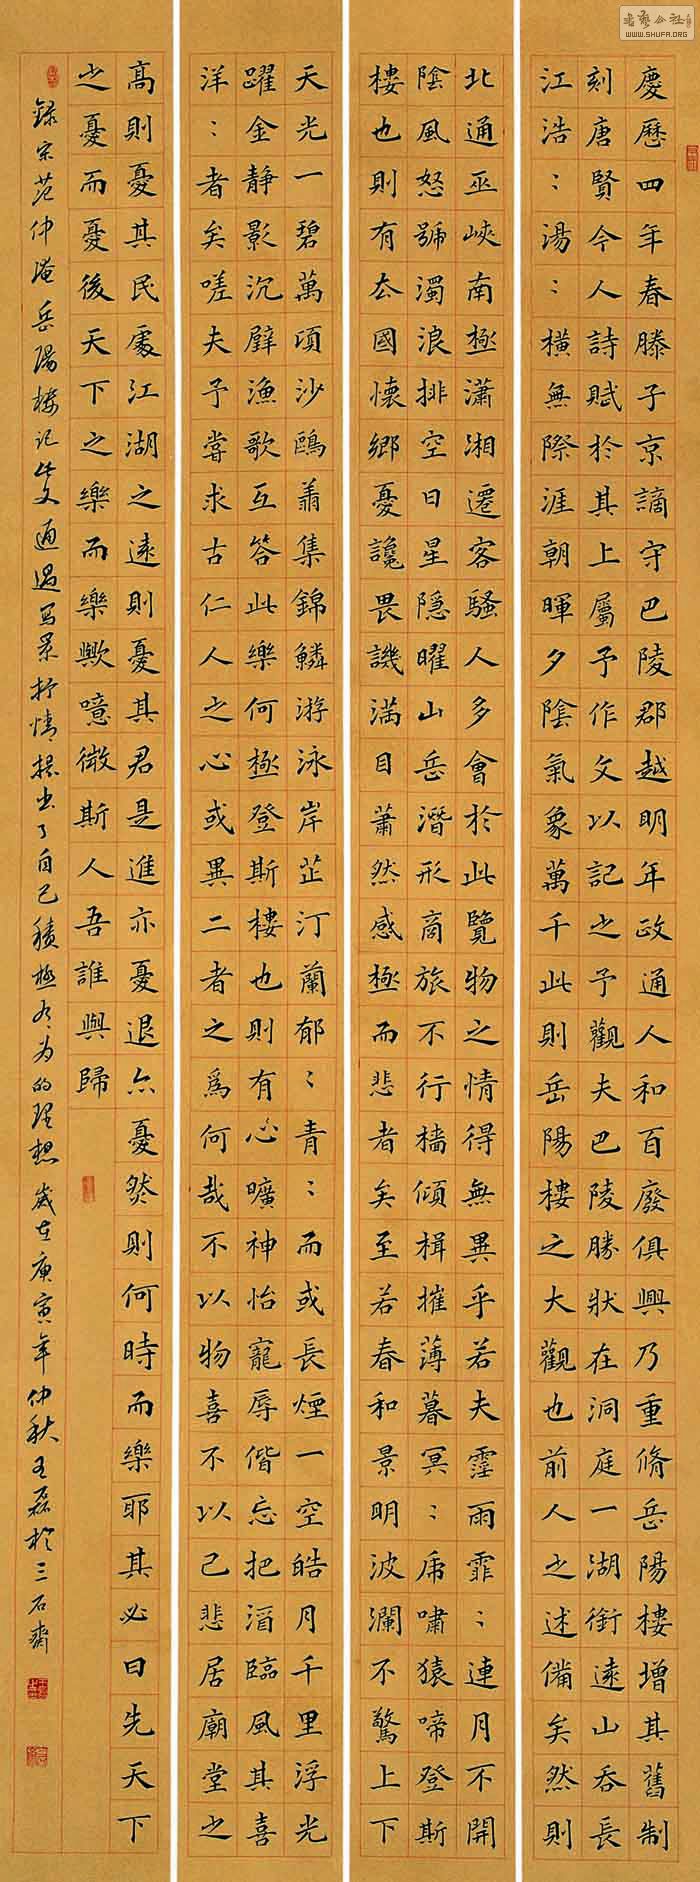 書藝公社
WWW.SHUFA.ORG
慶曆四年春滕子京謫守巴陵郡越明年政通人和百廢俱興乃重脩岳陽樓增其舊制
刻唐賢今人詩賦於其上屬予作文以記之予觀夫巴陵勝狀在洞庭一湖銜遠山吞長
江浩:湯:橫無際涯朝暉夕陰氣象萬千此則岳陽樓之大觀也前人之述備矣然則
北通巫峽南極瀟湘遷客騷人多會於此覽物之情得無異乎若夫霪雨霏:連月不開
陰風怒號濁浪排空日星隱曜山岳潛形商旅不行檣傾楫摧薄暮冥:虎嘯猿啼登斯
樓也則有去國懷鄉憂讒畏譏滿目蕭然感極而悲者矣至若春和景明波瀾不驚上下
天光一碧萬頃沙鷗翔集錦鱗游泳岸芷汀蘭郁:青:而或長煙一空皓月千里浮光
躍金靜影沉璧漁歌互答此樂何極登斯樓也則有心曠神怡寵辱偕忘把酒臨風其喜
洋:者矣嗟夫予嘗求古仁人之心或異二者之為何哉不以物喜不以己悲居廟堂之
高則憂其民處江湖之遠則憂其君是進亦憂退亦憂然則何時而樂耶其必曰先天下
之憂而憂後天下之樂而樂歟噫微斯人吾誰與歸
錄宋范仲淹岳陽樓記此文通過寫景抒情提出了自己積極有为的理想歲在庚寅年仲秋王磊於三石齋